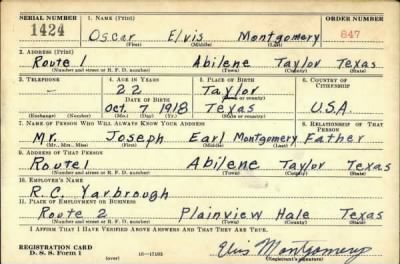 SERIAL NUMBER 1. NAME (Print) ORDER NUMBER
1424 Oscar Elvis Montgomery 847
(First) (Middle) (Last)
2. ADDRESS (Print)
Route 1 Abilene Taylor Texas
(Number and street or R. F. D. number) (Town) (County) (State)
3. TELEPHONE 4. AGE IN YEARS 5. PLACE OF BIRTH 6. COUNTRY OF CITIZENSHIP
22 Taylor
DATE OF BIRTH (Town or county)
Oct. 7 1918 Texas U.S.A.
(Exchange) (Number) (Mo.) (Day) (Yr.) (State or country)
7. NAME OF PERSON WHO WILL ALWAYS KNOW YOUR ADDRESS 8. RELATIONSHIP OF THAT PERSON
Mr. Joseph Earl Montgomery Father
(Mr., Mrs., Miss) (First) (Middle) (Last)
9. ADDRESS OF THAT PERSON
Route 1 Abilene Taylor Texas
(Number and street or R. F. D. number) (Town) (County) (State)
10. EMPLOYER'S NAME
R. C. Yarbrough
11. PLACE OF EMPLOYMENT OR BUSINESS
Route 2 Plainview Hale Texas
(Number and street or R. F. D. number) (Town) (County) (State)
I AFFIRM THAT I HAVE VERIFIED ABOVE ANSWERS AND THAT THEY ARE TRUE.
REGISTRATION CARD Elvis Montgomery
D. S. S. Form 1 16—17105 (Registrant's signature)